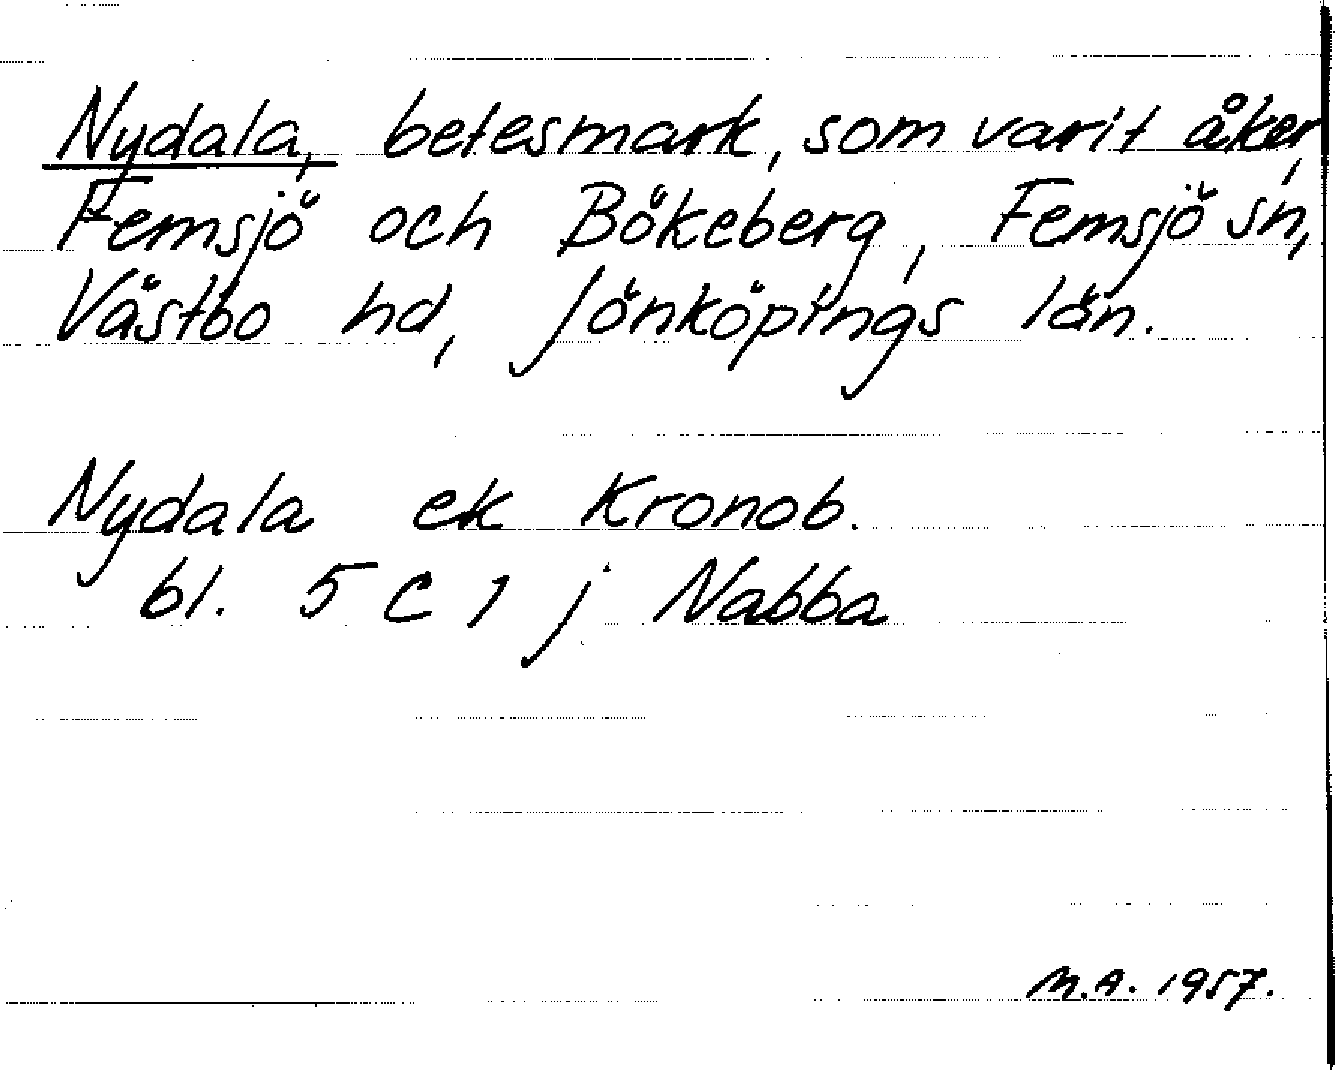 Nydala, betesmark, som varit åker,
Femsjö och Bökeberg, Femsjö sn,
Västbo hd, Jönköpings län.
Nydala ek Kronob.
bl. 5 C 1 j Nabba
M.A. 1957.